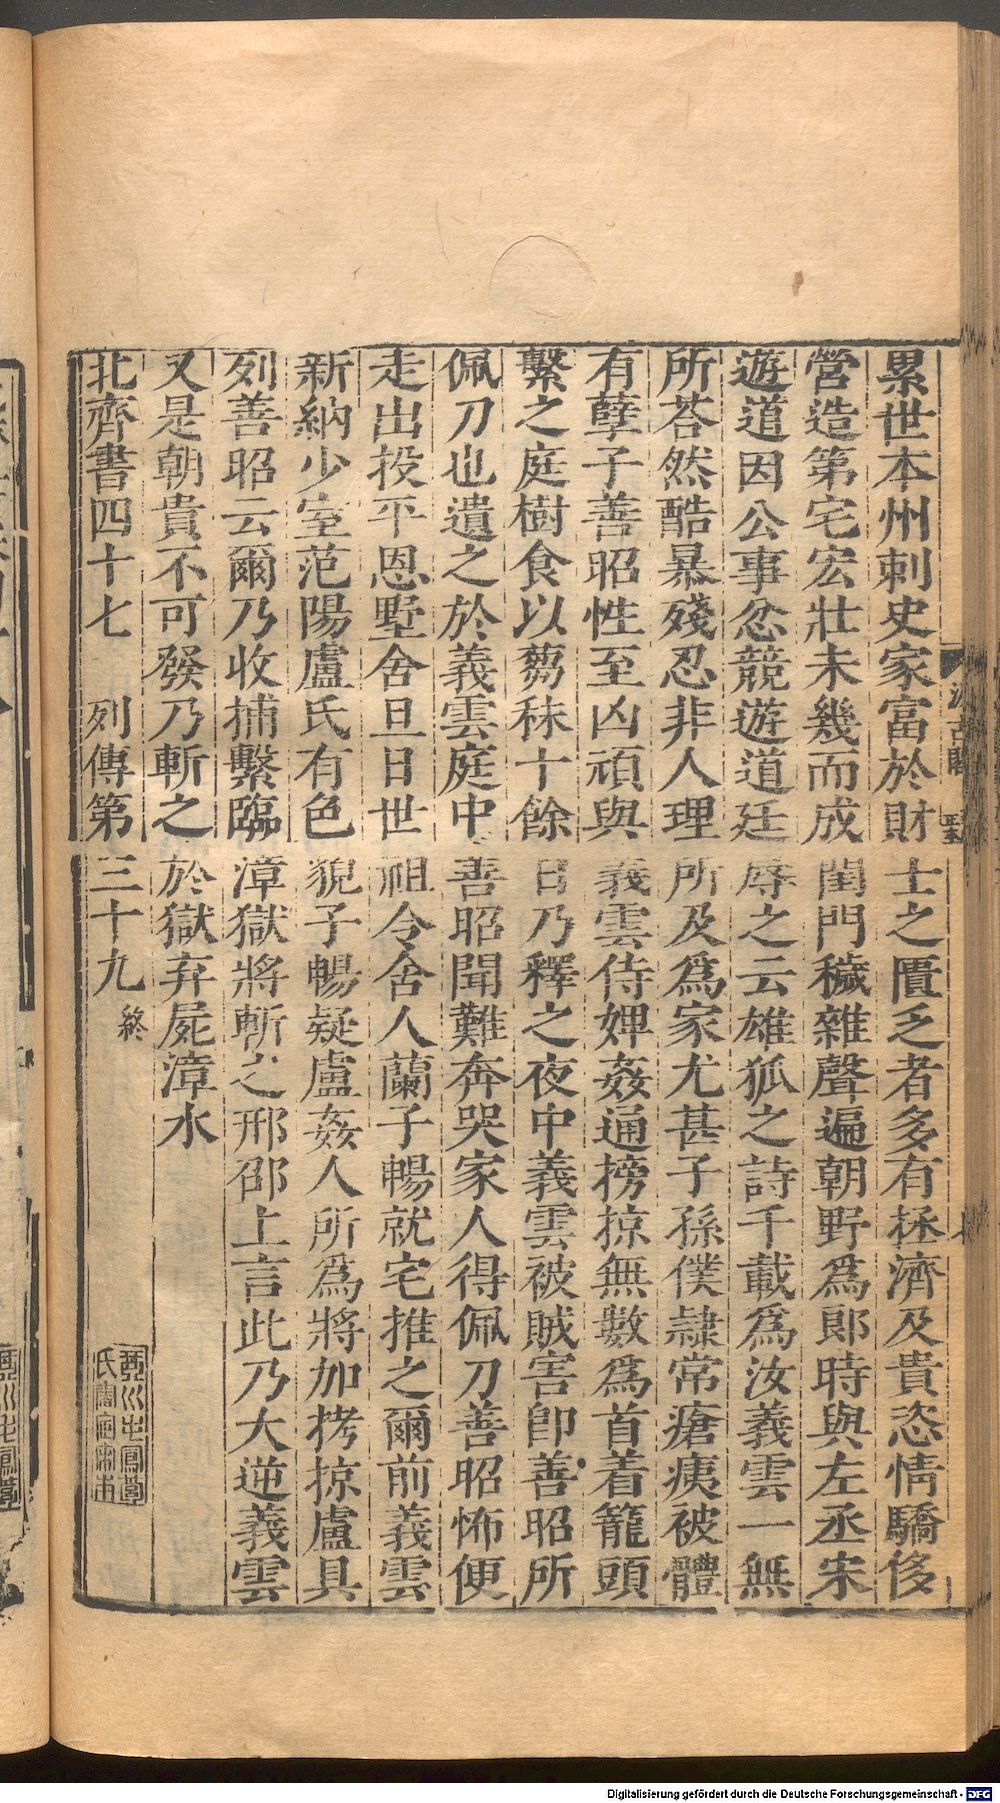 累世本州刺史家富於財士之匱乏者多有拯濟及貴恣情驕侈
營造第宅宏壯未幾而成閨門穢雜聲遍朝野爲郎時與左丞宋
遊道因公事忿競遊道廷辱之云雄狐之詩千載爲汝義雲一無
所荅然酷暴殘忍非人理所及爲家尤甚子孫僕隷常瘡痍被體
有孽子善昭性至凶頑與義雲侍婢姦通搒掠無數爲首着籠頭
繫之庭樹食以蒭秣十餘日乃釋之夜中義雲被賊害卽善昭所
佩刀也遺之於義雲庭中善昭聞難奔哭家人得佩刀善昭怖便
走出投平恩墅舍旦日世祖令舍人蘭子暢就宅推之爾前義雲
新納少室范陽盧氏有色貌子暢疑盧姦人所爲將加拷掠盧具
列善昭云爾乃收捕繫臨漳獄將斬之邢邵上言此乃大逆義雲
又是朝貴不可發乃斬之於獄弃屍漳水
北齊書四十七 列傳第三十九 終
Digitalisierung gefördert durch die Deutsche Forschungsgemeinschaft - DFG